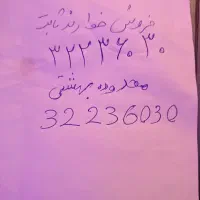 فروش خط رند ثابت
۳۲۲۳۶۰۳۰
محدوده بهشتی
32 236030